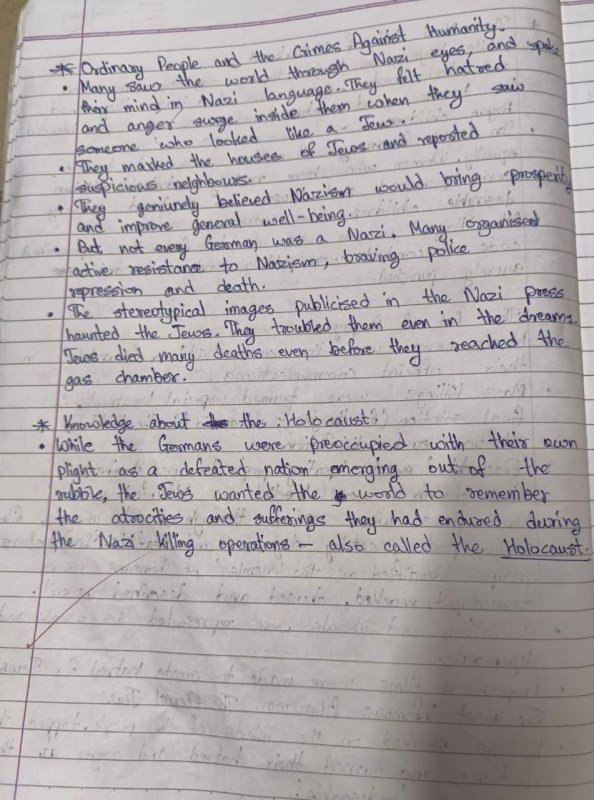 * Ordinary People and the Crimes Against Humanity-
• Many saw the world through Nazi eyes, and spoke
their mind in Nazi language. They felt hatred
and anger surge inside them when they saw
someone who looked like a Jew.
• They marked the houses of Jews and reported
suspicious neighbours.
• They geniunely believed Nazism would bring prosperity
and improve general well-being.
• But not every German was a Nazi. Many organised
active resistance to Nazism, braving police
repression and death.
• The stereotypical images publicised in the Nazi press
haunted the Jews. They troubled them even in the dreams.
Jews died many deaths even before they reached the
gas chamber.
* Knowledge about the Holocaust:
• While the Germans were preoccupied with their own
plight as a defeated nation emerging out of the
rubble, the Jews wanted the world to remember
the atrocities and sufferings they had endured during
the Nazi killing operations – also called the Holocaust.